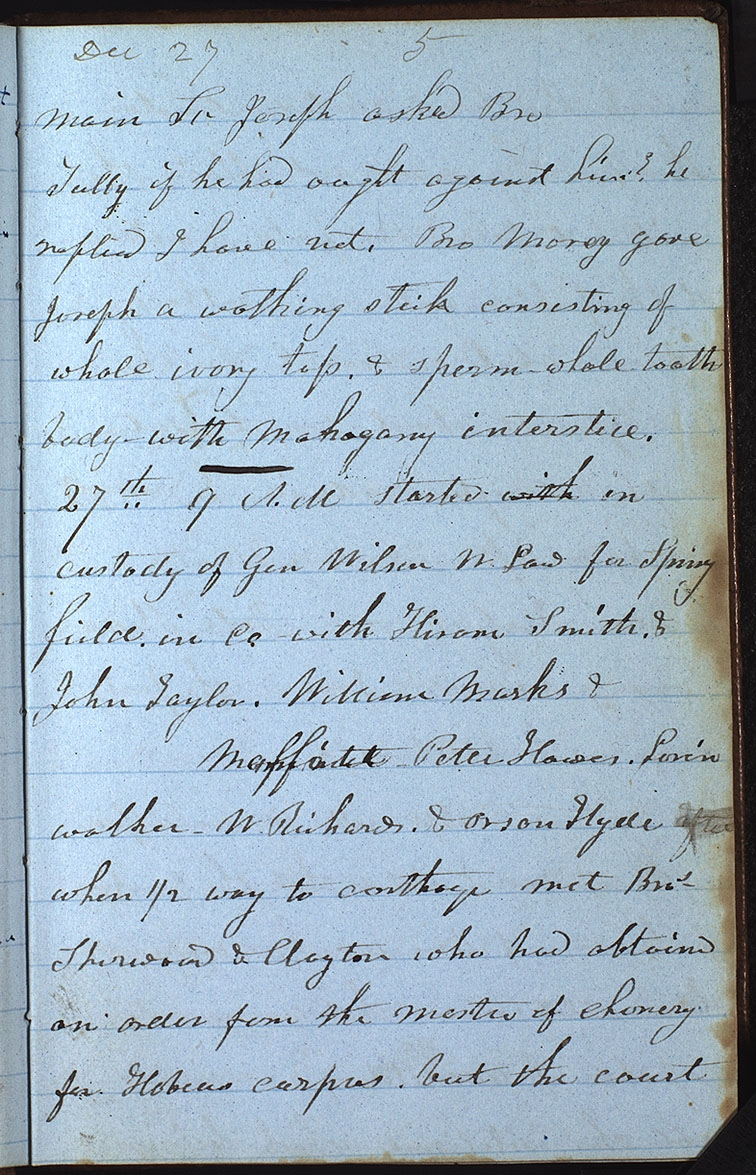 Dec 27 5
main Sr Joseph asked Bro
Tully if he had ought against him? he
replied I have not. Bro Morey gave
Joseph a walking stick consisting of
whale ivory top. & sperm-whale tooth
body-with Mahogany interstice.
27th 9 A.M started with in
custody of Gen Wilson W. Law for Spring
field. in Co with Hiram Smith. &
John Taylor. William Marks &
Moffatt Peter Hawes. Lorin
walker - W. Richards. & Orson Hyde after
when 1/2 way to carthage met Bro's-
Sherwood & Clayton who had obtaind
an order from the master of chancery
for Habeus carpus. but the court